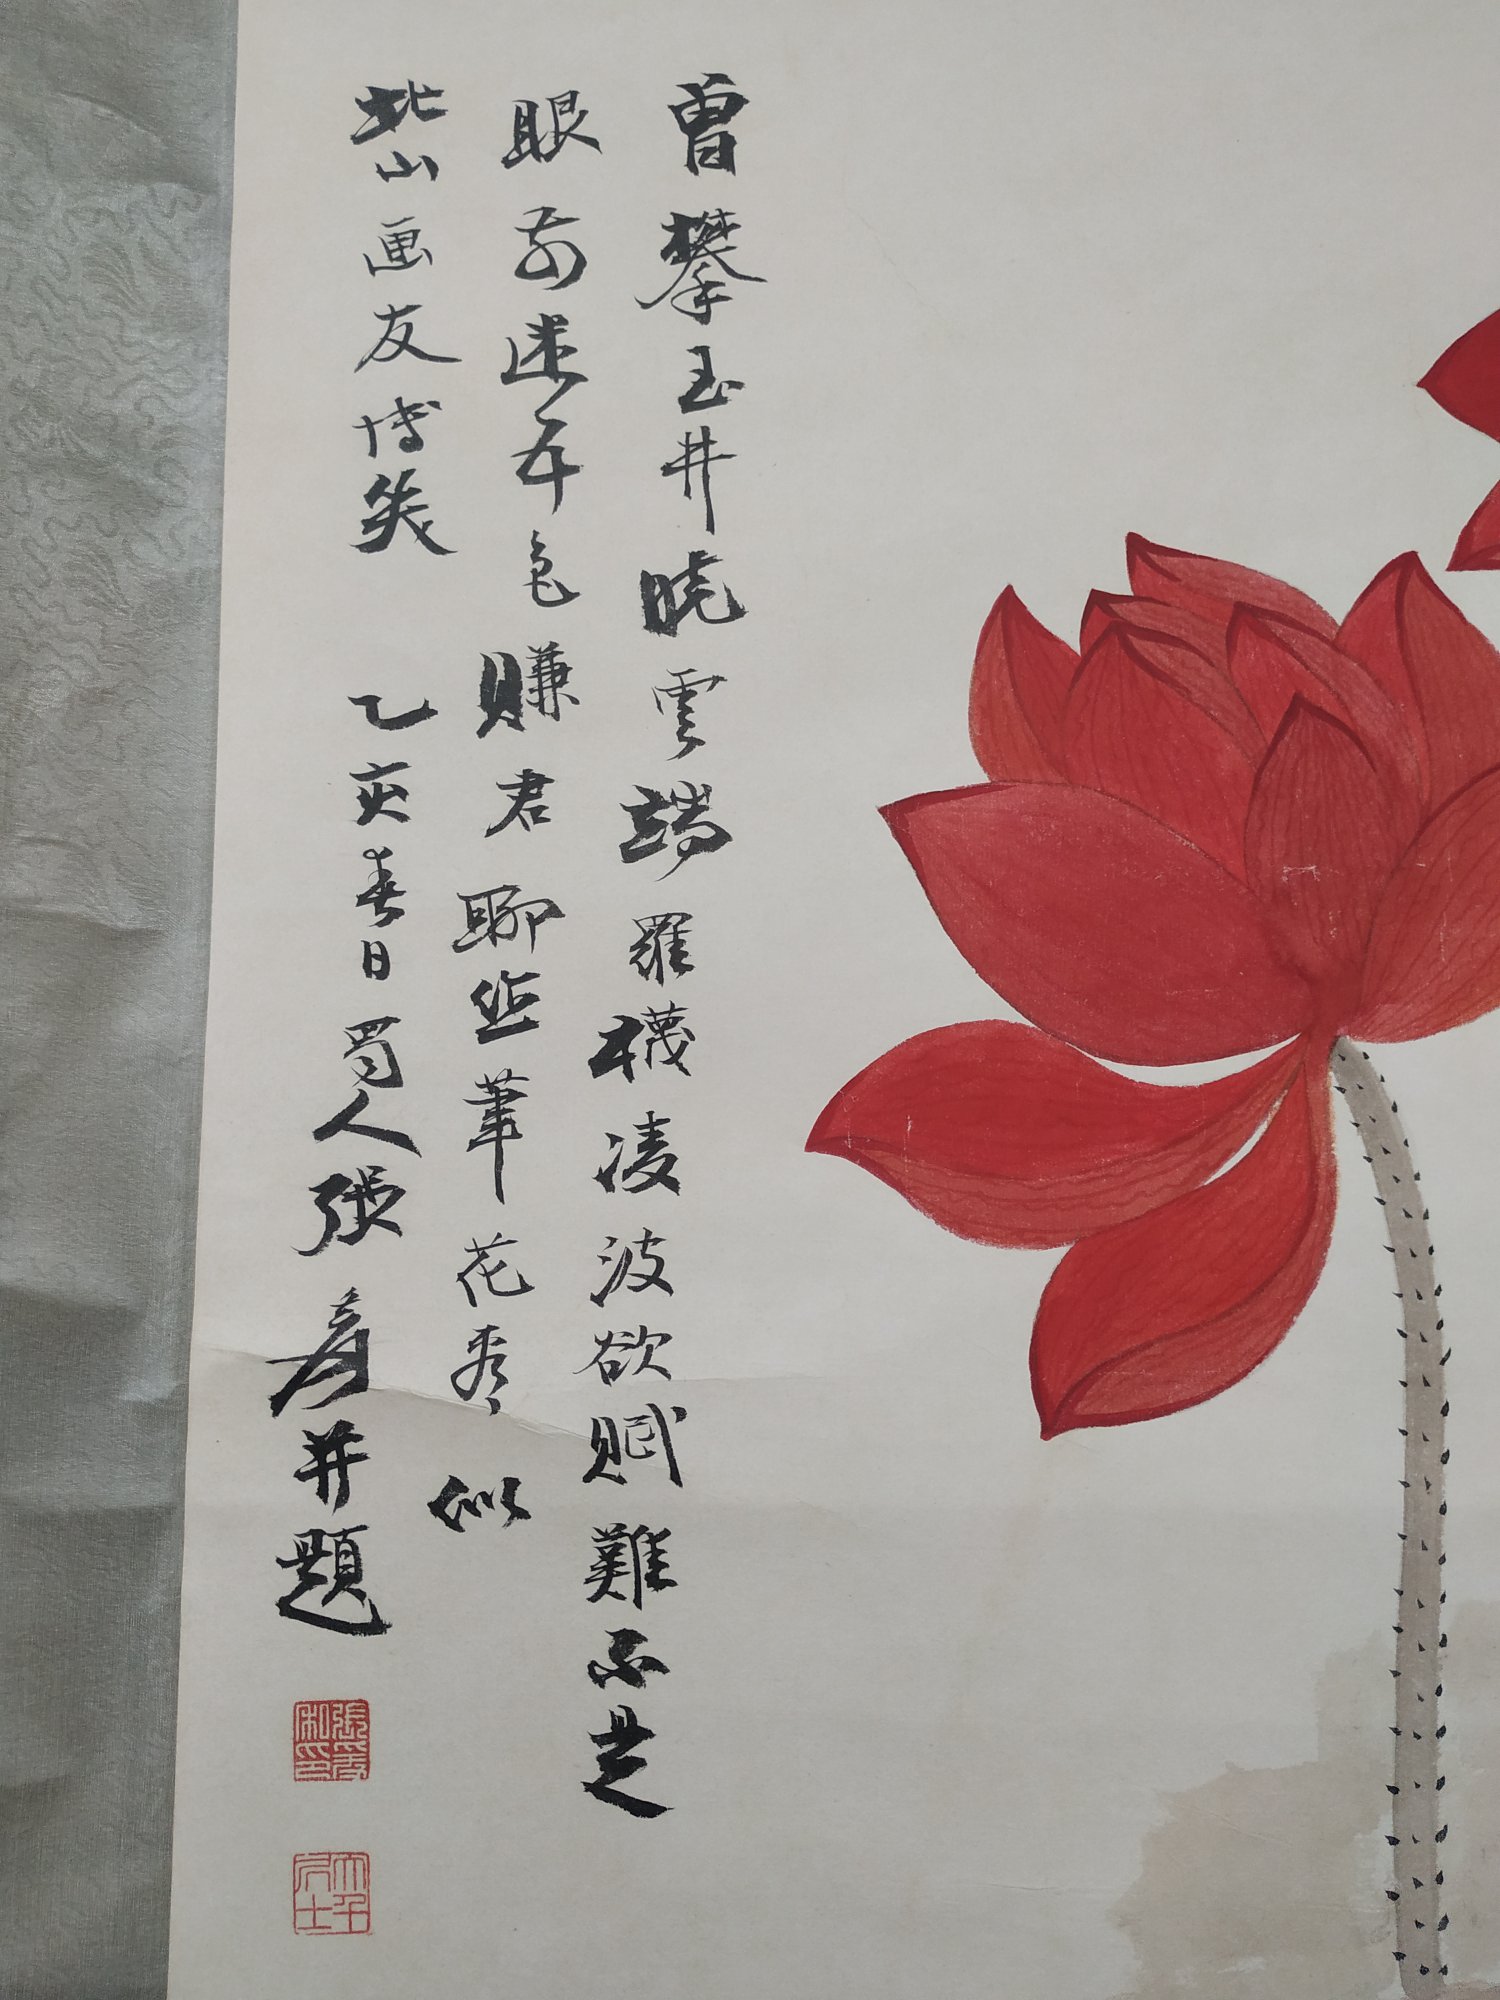 曾攀玉井曉雲端羅襪凌波欲賦難不是
眼前迷五色賺君聊作筆花看 似
北山画友博笑 乙亥春日蜀人張爰并題
張爰私印
大千居士